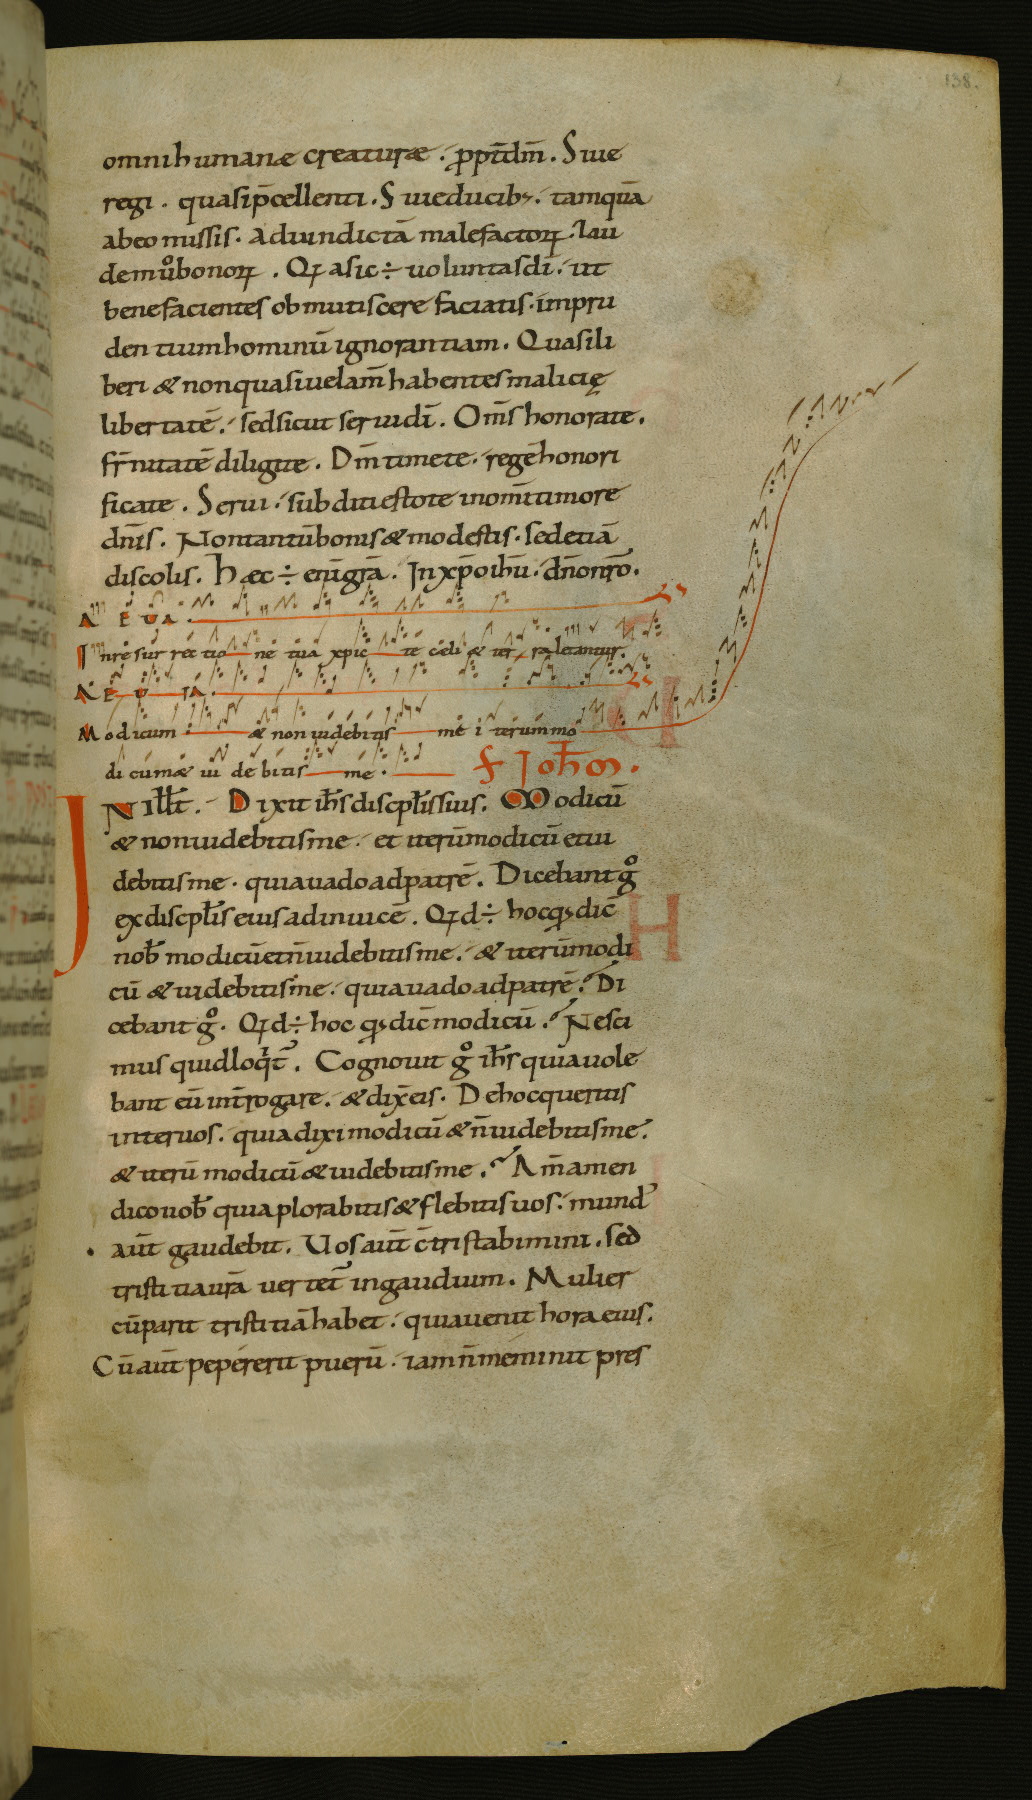 138.
omni humanæ creaturæ . ꝓpt̄ dm̄ . Siue
regi . quasi p̄cellenti . Siue ducibꝫ . tamquā
ab eo missis . Ad uindictā malefactoꝝ . lau
dem ů bonoꝝ . Qꝛ a sic ÷ uoluntas dī . ut
benefacientes obmutiscere faciatis . impru
dentium hominū ignorantiam . Quasi li
beri & non quasi uelam̄ habentes malicię
libertatē . sed sicut serui dī . Om̄s honorate .
fr̄nitatē diligite . Dm̄ timete . regē honori
ficate . Serui . subditi estote in om̄i timore
dn̄is . Non tantū bonis & modestis . sed etiā
discolis . Hæc ÷ enī gr̄a . In xp̄o ihū . dn̄o nr̄o .
A E U A .
In re sur rec tio ne tua xp̄ic te celi & ter ra letantur .
A E U IA .
Modicum & non uidebitis me i terum mo
di cum æ ui de bitis me .
f Iohōn .
IN ill̄ t̄ . Dixit ih̄s discipl̄is suis . Modicū
& non uidebitis me . et iterū modicū et ui
debitis me . quia uado ad patrē . Dicebant gͦ
ex discipl̄is eius ad inuicē . Qꝛd ÷ hoc qꝫ dic̄
nob̄ modicū et n̄ uidebitis me . & iterū modi
cū & uidebitis me . quia uado ad patrē . Di
cebant gͦ . Qꝛd ÷ hoc qꝫ dic̄ modicū . Nesci
mus quid loqt̄ . Cognouit gͦ ih̄s quia uole
bant eū int̄rogare . & dix̄ eis . De hoc queritis
inter uos . quia dixi modicū & n̄ uidebitis me .
& iterū modicū & uidebitis me . Am̄ amen
dico uob̄ quia plorabitis & flebitis uos . mund᷒
aūt gaudebit . Uos aūt c̄tristabimini . sed
tristitia ur̄a uertet̄ in gaudium . Mulier
cū parit tristitiā habet . quia uenit hora eius .
Cū aūt pepererit puerū . iam n̄ meminit pres